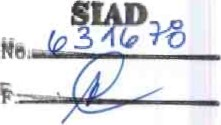 SIAD
No. 631678
F